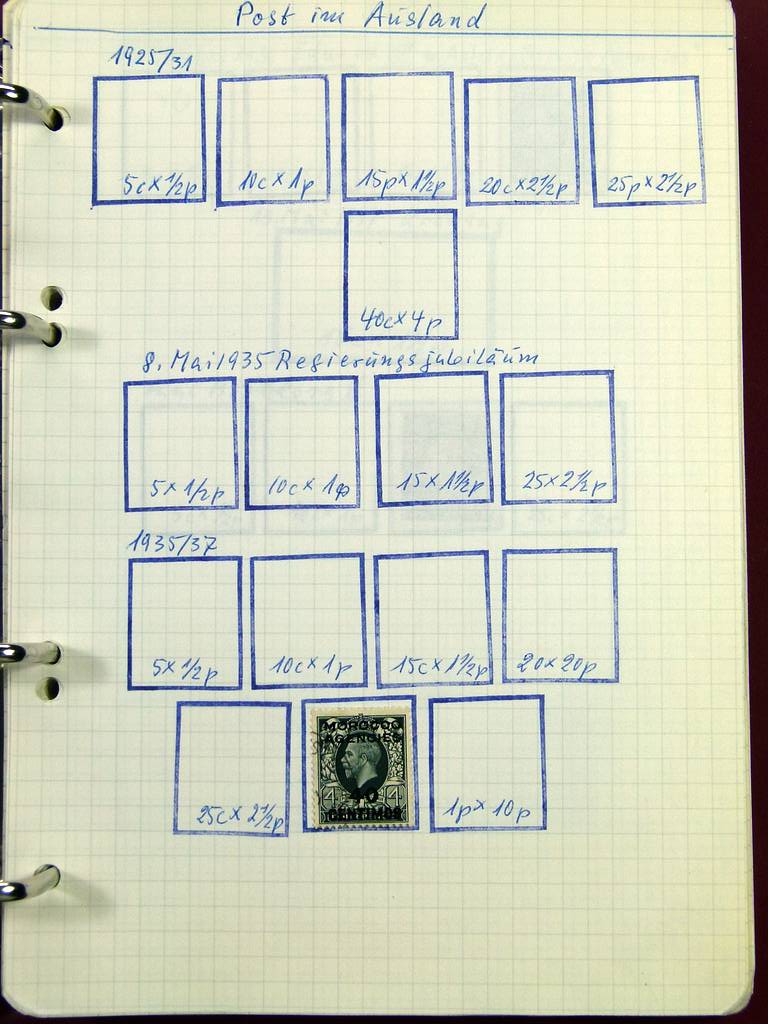 Post im Ausland
1925/31
5c x 1/2p 10c x 1p 15p x 1 1/2p 20c x 2 1/2p 25p x 2 1/2p
40c x 4p
8. Mai 1935 Regierungsjubiläum
5 x 1/2p 10c x 1p 15 x 1 1/2p 25 x 2 1/2p
1935/37
5 x 1/2p 10c x 1p 15c x 1 1/2p 20 x 20p
MOROCCO
AGENCIES
4 40 4
CENTIMOS
25c x 2 1/2p 1p x 10p